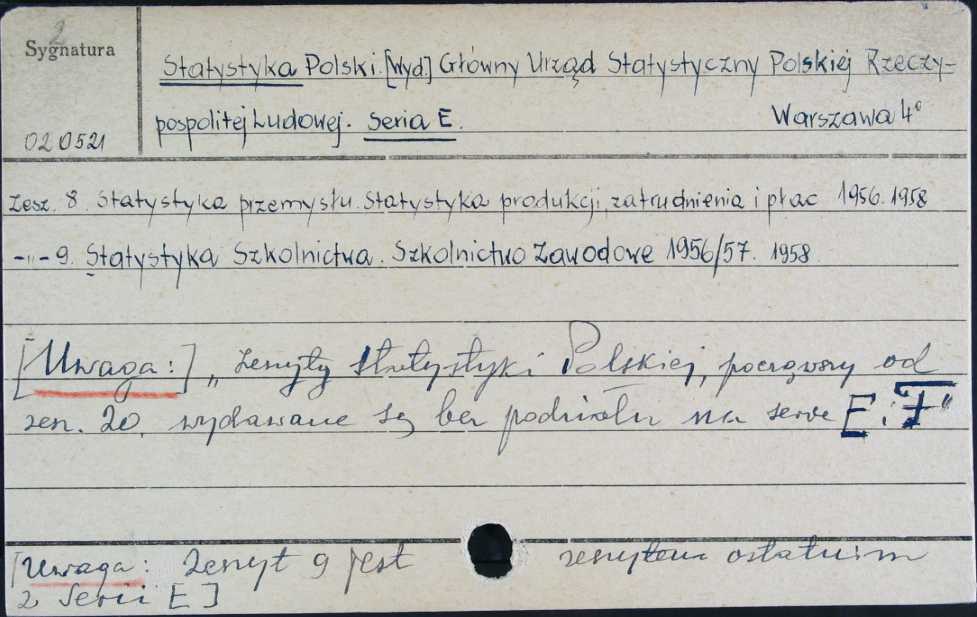 2
Sygnatura
Statystyka Polski. [Wyd.] Główny Urząd Statystyczny Polskiej Rzeczy-
pospolitej Ludowej. Seria E. Warszawa 4°
020521
Zesz. 8. Statystyka przemysłu. Statystyka produkcji, zatrudnienia i płac 1956. 1958
-"- 9. Statystyka Szkolnictwa. Szkolnictwo Zawodowe 1956/57. 1958.
[Uwaga:] „Zeszyty Statystyki Polskiej, począwszy od
zesz. 20, wydawane są bez podziału na serie E i F"
[Uwaga: Zeszyt 9 jest zeszytem ostatnim
z Serii E]